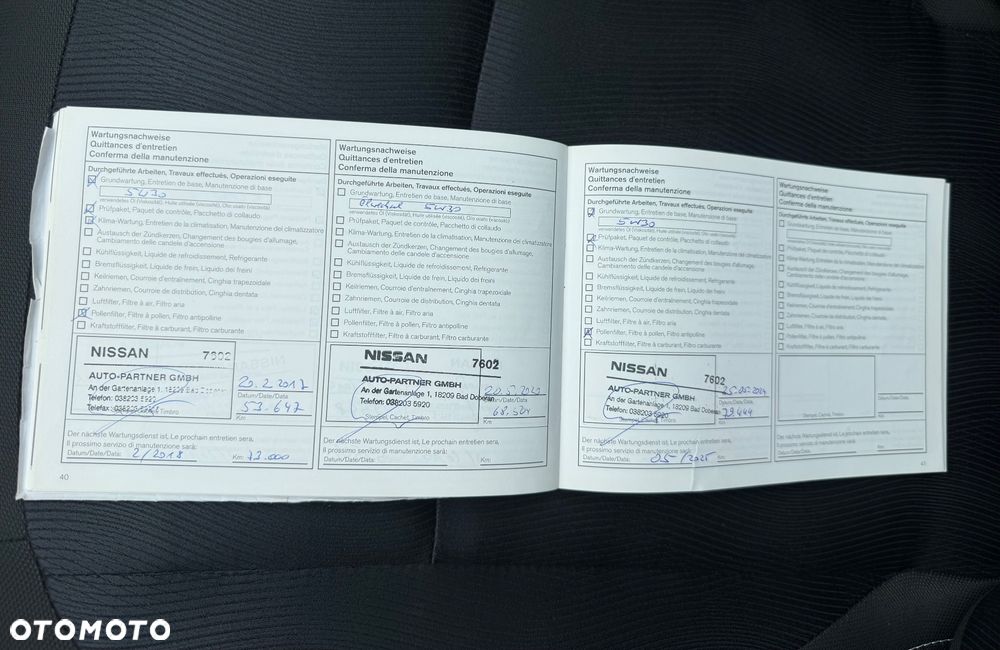 Wartungsnachweise
Quittances d'entretien
Conferma della manutenzione
Durchgeführte Arbeiten, Travaux effectués, Operazioni eseguite
Grundwartung, Entretien de base, Manutenzione di base
5W30
verwendetes Öl (Viskosität), Huile utilisée (viscosité), Olio usato (viscosità)
Prüfpaket, Paquet de contrôle, Pacchetto di collaudo
Klima-Wartung, Entretien de la climatisation, Manutenzione del climatizzatore
Austausch der Zündkerzen, Changement des bougies d'allumage,
Cambiamento delle candele d'accensione
Kühlflüssigkeit, Liquide de refroidissement, Refrigerante
Bremsflüssigkeit, Liquide de frein, Liquido dei freni
Keilriemen, Courroie d'entraînement, Cinghia trapezoidale
Zahnriemen, Courroie de distribution, Cinghia dentata
Luftfilter, Filtre à air, Filtro aria
Pollenfilter, Filtre à pollen, Filtro antipolline
Kraftstofffilter, Filtre à carburant, Filtro carburante
NISSAN 7602
AUTO-PARTNER GMBH
An der Gartenanlage 1, 18209 Bad Doberan
Telefon: 038203 5920
Telefax:
20.2.2017
Datum/Date/Data
53.647
Km
Der nächste Wartungsdienst ist, Le prochain entretien sera,
Il prossimo servizio di manutenzione sarà:
Datum/Date/Data: 2/2018 Km: 73.000
40
Wartungsnachweise
Quittances d'entretien
Conferma della manutenzione
Durchgeführte Arbeiten, Travaux effectués, Operazioni eseguite
Grundwartung, Entretien de base, Manutenzione di base
5W30
verwendetes Öl (Viskosität), Huile utilisée (viscosité), Olio usato (viscosità)
Prüfpaket, Paquet de contrôle, Pacchetto di collaudo
Klima-Wartung, Entretien de la climatisation, Manutenzione del climatizzatore
Austausch der Zündkerzen, Changement des bougies d'allumage,
Cambiamento delle candele d'accensione
Kühlflüssigkeit, Liquide de refroidissement, Refrigerante
Bremsflüssigkeit, Liquide de frein, Liquido dei freni
Keilriemen, Courroie d'entraînement, Cinghia trapezoidale
Zahnriemen, Courroie de distribution, Cinghia dentata
Luftfilter, Filtre à air, Filtro aria
Pollenfilter, Filtre à pollen, Filtro antipolline
Kraftstofffilter, Filtre à carburant, Filtro carburante
NISSAN 7602
AUTO-PARTNER GMBH
An der Gartenanlage 1, 18209 Bad Doberan
Telefon: 038203 5920
Stempel, Cachet, Timbro
20.5.2020
Datum/Date/Data
68.524
Km
Der nächste Wartungsdienst ist, Le prochain entretien sera,
Il prossimo servizio di manutenzione sarà:
Datum/Date/Data: Km:
Wartungsnachweise
Quittances d'entretien
Conferma della manutenzione
Durchgeführte Arbeiten, Travaux effectués, Operazioni eseguite
Grundwartung, Entretien de base, Manutenzione di base
5W30
verwendetes Öl (Viskosität), Huile utilisée (viscosité), Olio usato (viscosità)
Prüfpaket, Paquet de contrôle, Pacchetto di collaudo
Klima-Wartung, Entretien de la climatisation, Manutenzione del climatizzatore
Austausch der Zündkerzen, Changement des bougies d'allumage,
Cambiamento delle candele d'accensione
Kühlflüssigkeit, Liquide de refroidissement, Refrigerante
Bremsflüssigkeit, Liquide de frein, Liquido dei freni
Keilriemen, Courroie d'entraînement, Cinghia trapezoidale
Zahnriemen, Courroie de distribution, Cinghia dentata
Luftfilter, Filtre à air, Filtro aria
Pollenfilter, Filtre à pollen, Filtro antipolline
Kraftstofffilter, Filtre à carburant, Filtro carburante
NISSAN 7602
AUTO-PARTNER GMBH
An der Gartenanlage 1, 18209 Bad Doberan
Telefon: 038203 5920
Stempel, Cachet, Timbro
25.05.2024
Datum/Date/Data
79.444
Km
Der nächste Wartungsdienst ist, Le prochain entretien sera,
Il prossimo servizio di manutenzione sarà:
Datum/Date/Data: 05/2025 Km:
Wartungsnachweise
Quittances d'entretien
Conferma della manutenzione
Durchgeführte Arbeiten, Travaux effectués, Operazioni eseguite
Grundwartung, Entretien de base, Manutenzione di base
Prüfpaket, Paquet de contrôle, Pacchetto di collaudo
Klima-Wartung, Entretien de la climatisation, Manutenzione del climatizzatore
Austausch der Zündkerzen, Changement des bougies d'allumage,
Cambiamento delle candele d'accensione
Kühlflüssigkeit, Liquide de refroidissement, Refrigerante
Bremsflüssigkeit, Liquide de frein, Liquido dei freni
Keilriemen, Courroie d'entraînement, Cinghia trapezoidale
Zahnriemen, Courroie de distribution, Cinghia dentata
Luftfilter, Filtre à air, Filtro aria
Pollenfilter, Filtre à pollen, Filtro antipolline
Kraftstofffilter, Filtre à carburant, Filtro carburante
Stempel, Cachet, Timbro
Datum/Date/Data
Km
Der nächste Wartungsdienst ist, Le prochain entretien sera,
Il prossimo servizio di manutenzione sarà:
Datum/Date/Data: Km:
41
OTOMOTO